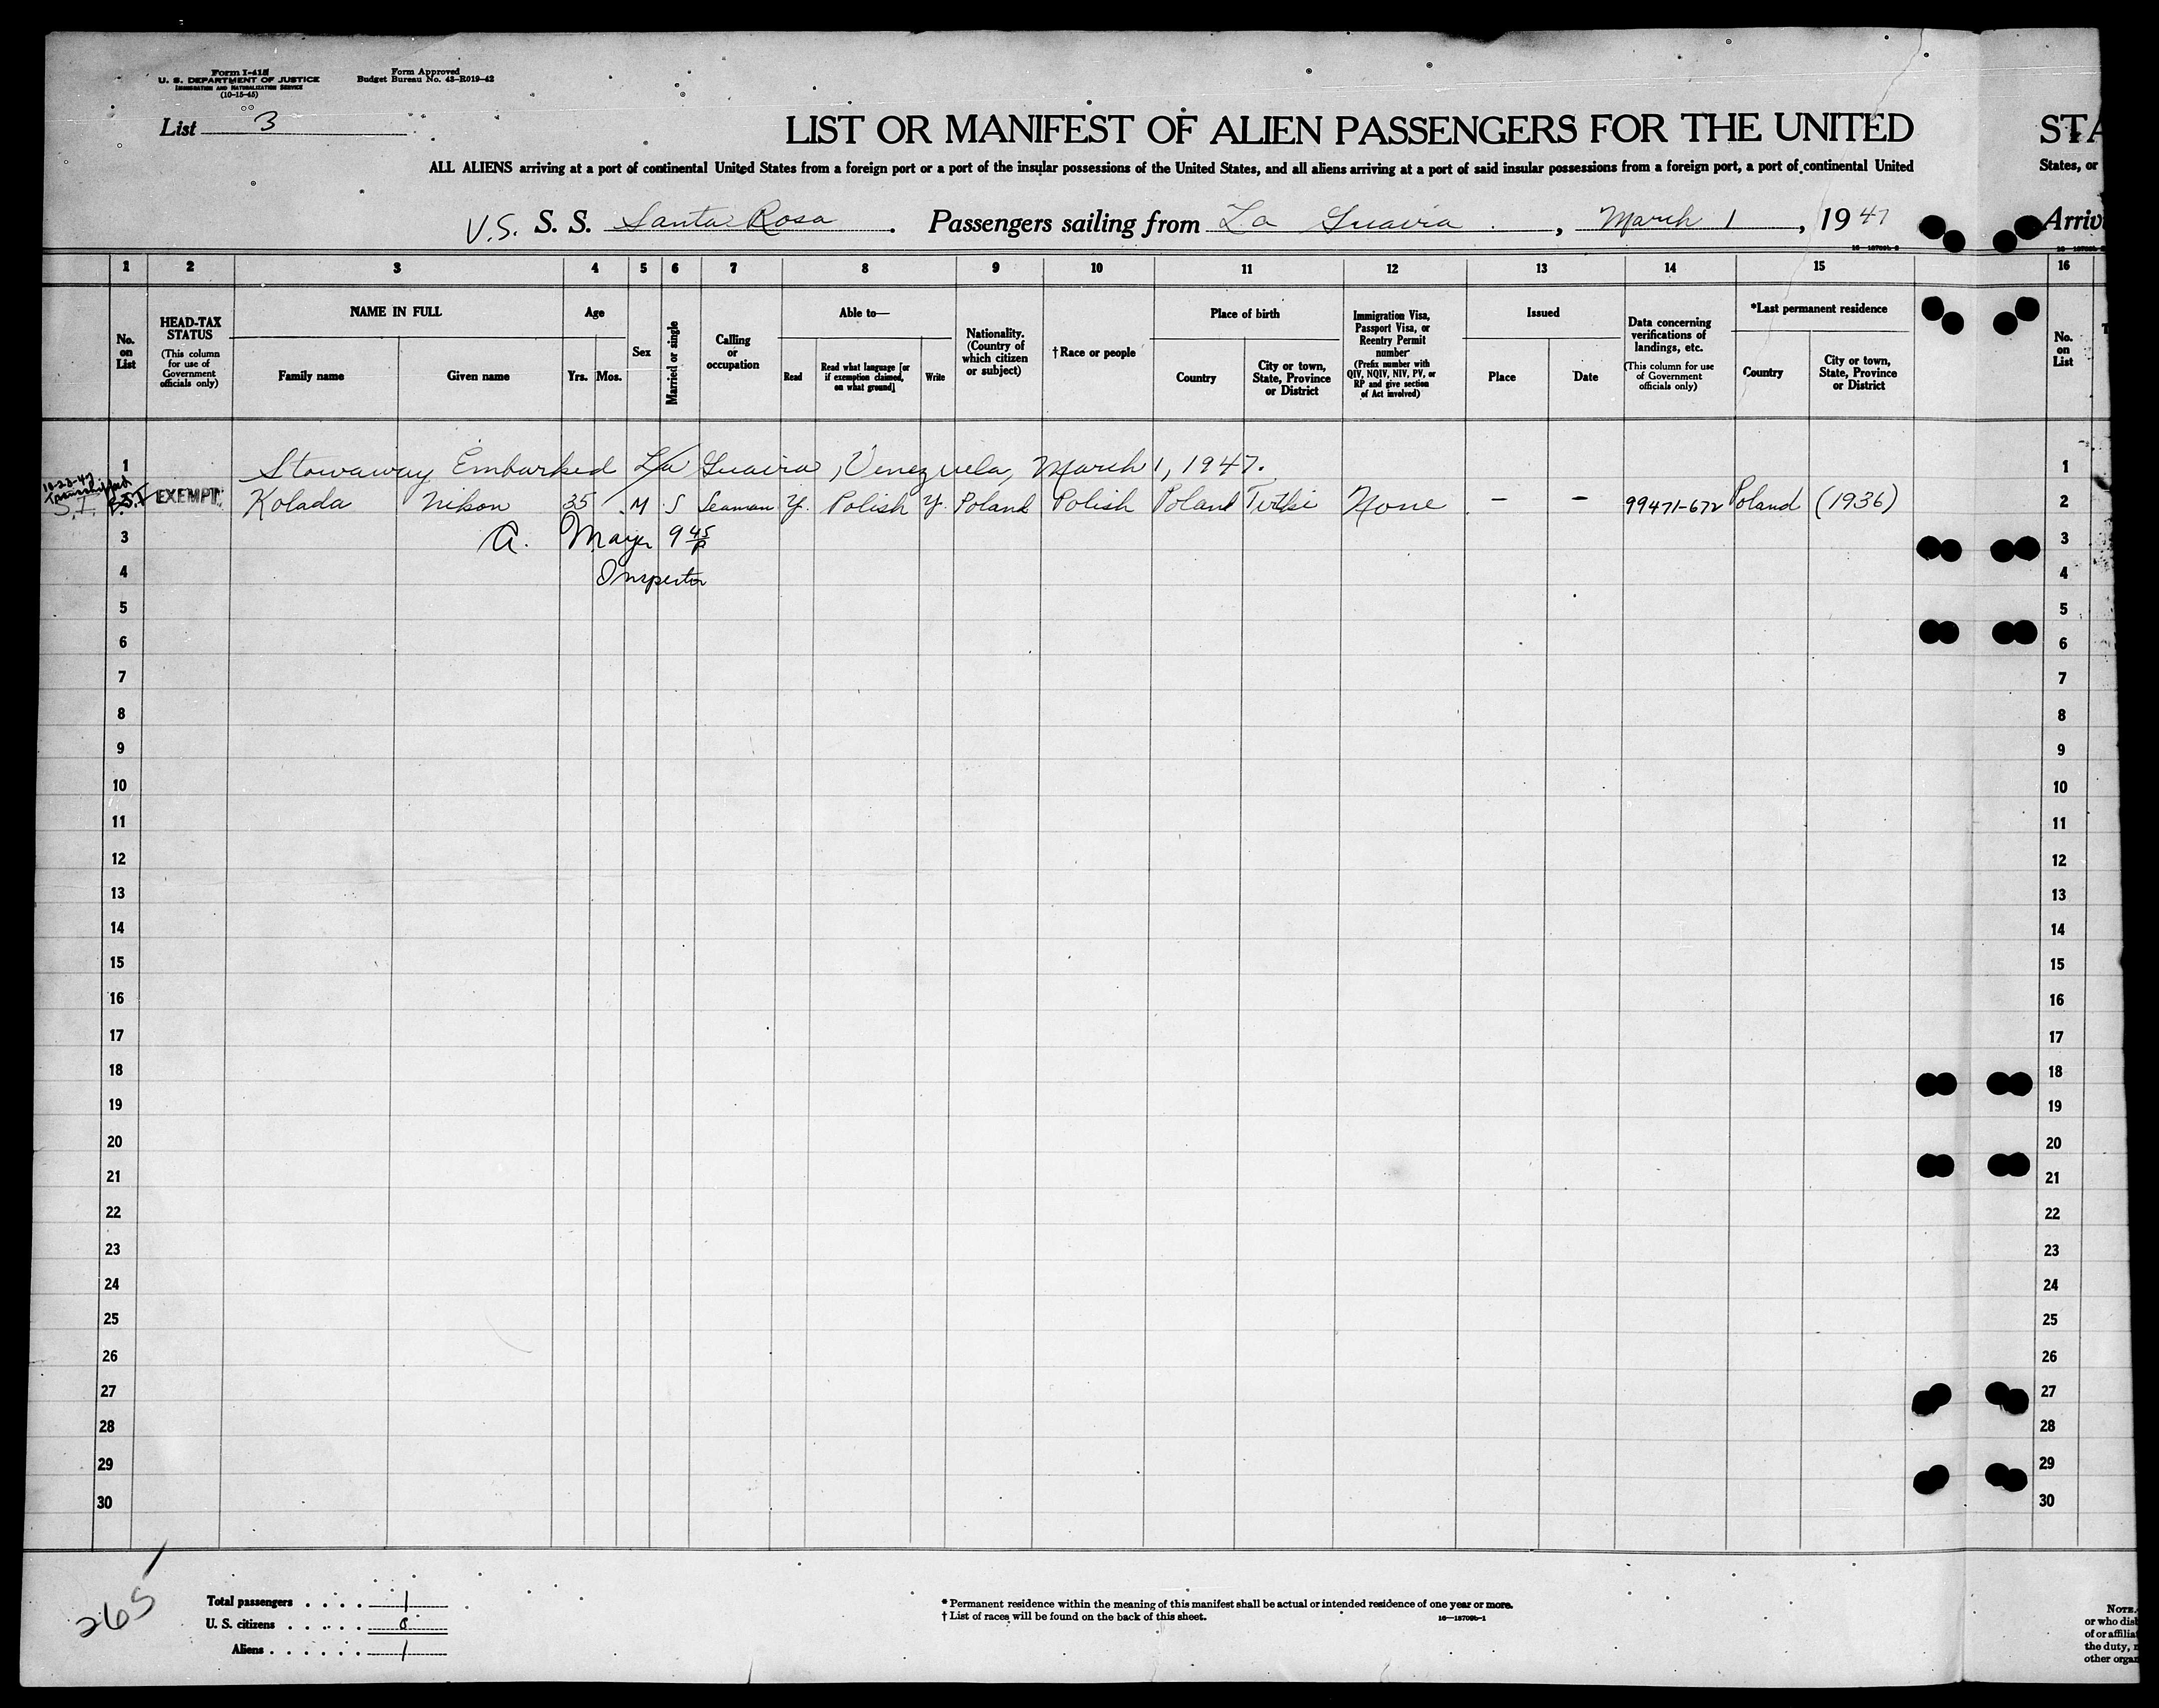 Form I-415
U. S. DEPARTMENT OF JUSTICE
IMMIGRATION AND NATURALIZATION SERVICE
(10-15-45)
Form Approved
Budget Bureau No. 43-R019-42
List 3
LIST OR MANIFEST OF ALIEN PASSENGERS FOR THE UNITED STA
ALL ALIENS arriving at a port of continental United States from a foreign port or a port of the insular possessions of the United States, and all aliens arriving at a port of said insular possessions from a foreign port, a port of continental United States, or
V.S. S. S. Santa Rosa. Passengers sailing from La Guaira, March 1, 1947 Arriv
1 2 3 4 5 6 7 8 9 10 11 12 13 14 15 16
No. on List
HEAD-TAX STATUS
(This column for use of Government officials only)
NAME IN FULL
Family name
Given name
Age
Yrs. Mos.
Sex
Married or single
Calling or occupation
Able to—
Read
Read what language [or if exemption claimed, on what ground]
Write
Nationality. (Country of which citizen or subject)
†Race or people
Place of birth
Country
City or town, State, Province or District
Immigration Visa, Passport Visa, or Reentry Permit number
(Prefix number with QIV, NQIV, NIV, PV, or RP and give section of Act involved)
Issued
Place
Date
Data concerning verifications of landings, etc.
(This column for use of Government officials only)
*Last permanent residence
Country
City or town, State, Province or District
No. on List
1 Stowaway Embarked La Guaira, Venezuela, March 1, 1947. 1
10-22-47
Transshipped
S.I. EXEMPT. Kolada Nikon 35 M S Seaman Y. Polish Y. Poland Polish Poland None - - 99471-672 Poland (1936) 2
3 A. Mayer 9 45 P 3
4 Inspector 4
5 5
6 6
7 7
8 8
9 9
10 10
11 11
12 12
13 13
14 14
15 15
16 16
17 17
18 18
19 19
20 20
21 21
22 22
23 23
24 24
25 25
26 26
27 27
28 28
29 29
30 30
265
Total passengers . . . . 1
U. S. citizens . . . . . 0
Aliens . . . . . . 1
* Permanent residence within the meaning of this manifest shall be actual or intended residence of one year or more.
† List of races will be found on the back of this sheet.
NOTE.
or who dis
of or affilia
the duty,
other organ